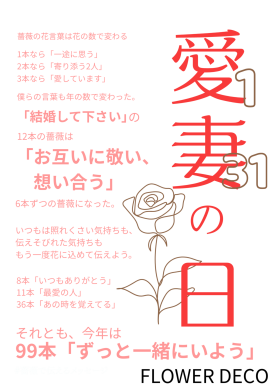 薔薇の花言葉は花の数で変わる
1本なら「一途に思う」
2本なら「寄り添う2人」
3本なら「愛しています」
僕らの言葉も年の数で変わった。
「結婚して下さい」の
12本の薔薇は
「お互いに敬い、
想い合う」
6本ずつの薔薇になった。
いつもは照れくさい気持ちも、
伝えそびれた気持ちも
もう一度花に込めて伝えよう。
8本「いつもありがとう」
11本「最愛の人」
36本「あの時を覚えてる」
それとも、今年は
99本「ずっと一緒にいよう」
愛妻の日
1
31
FLOWER DECO